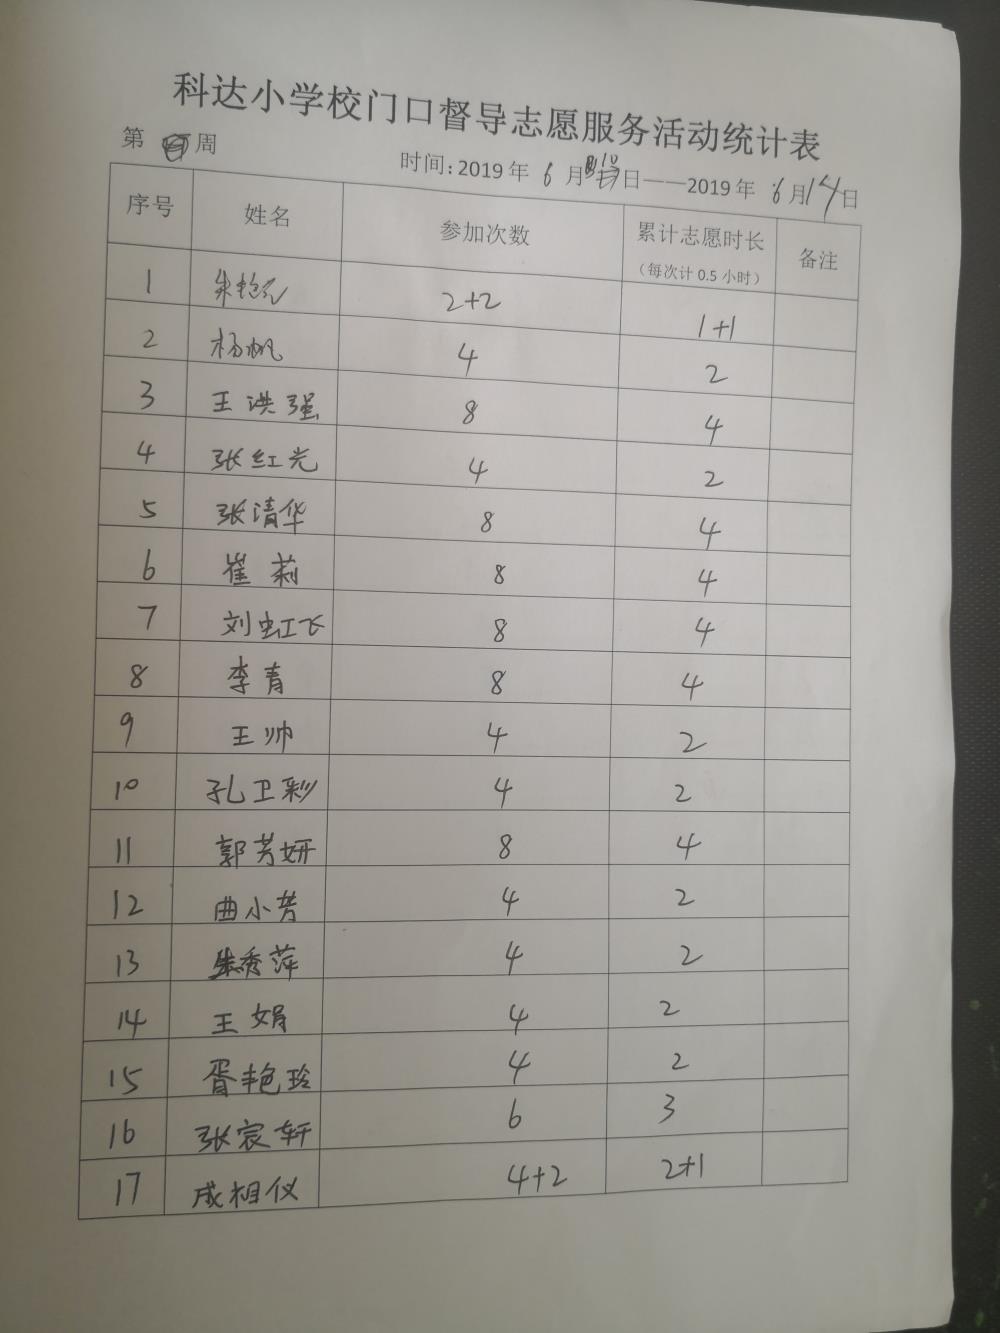 科达小学校门口督导志愿服务活动统计表
第 周
时间:2019年6月10日——2019年6月14日
序号 姓名 参加次数 累计志愿时长（每次计0.5小时） 备注
1 朱 2+2 1+1
2 杨帆 4 2
3 王洪强 8 4
4 张红光 4 2
5 张清华 8 4
6 崔莉 8 4
7 刘虹飞 8 4
8 李青 8 4
9 王帅 4 2
10 孔卫彩 4 2
11 郭芳妍 8 4
12 曲小芳 4 2
13 朱秀萍 4 2
14 王娟 4 2
15 胥艳玲 4 2
16 张宸轩 6 3
17 成相仪 4+2 2+1